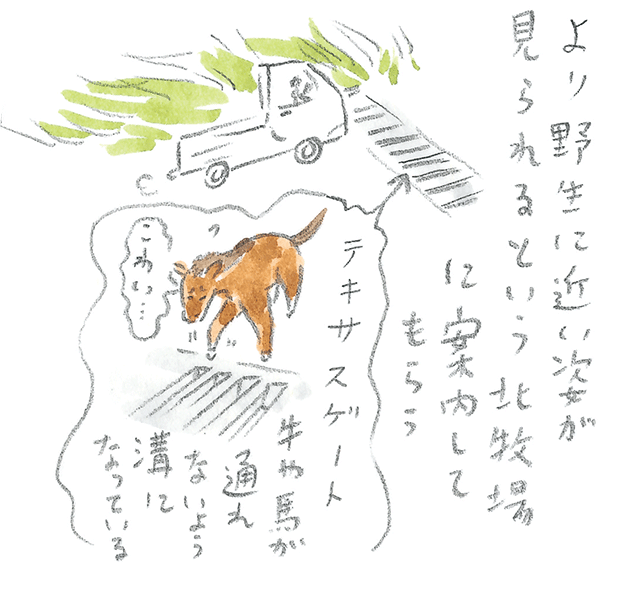 より野生に近い姿が
見られるという北牧場
に案内して
もらう
テキサスゲート
こわい…
牛や馬が
通れ
ないよう
溝に
なっている